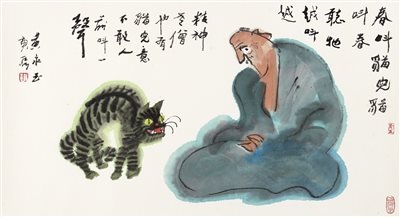 春叫貓兒貓
叫春
聽牠
越叫
越
精神
老僧
也有
貓兒意
不敢人
前叫一
聲
黃永玉